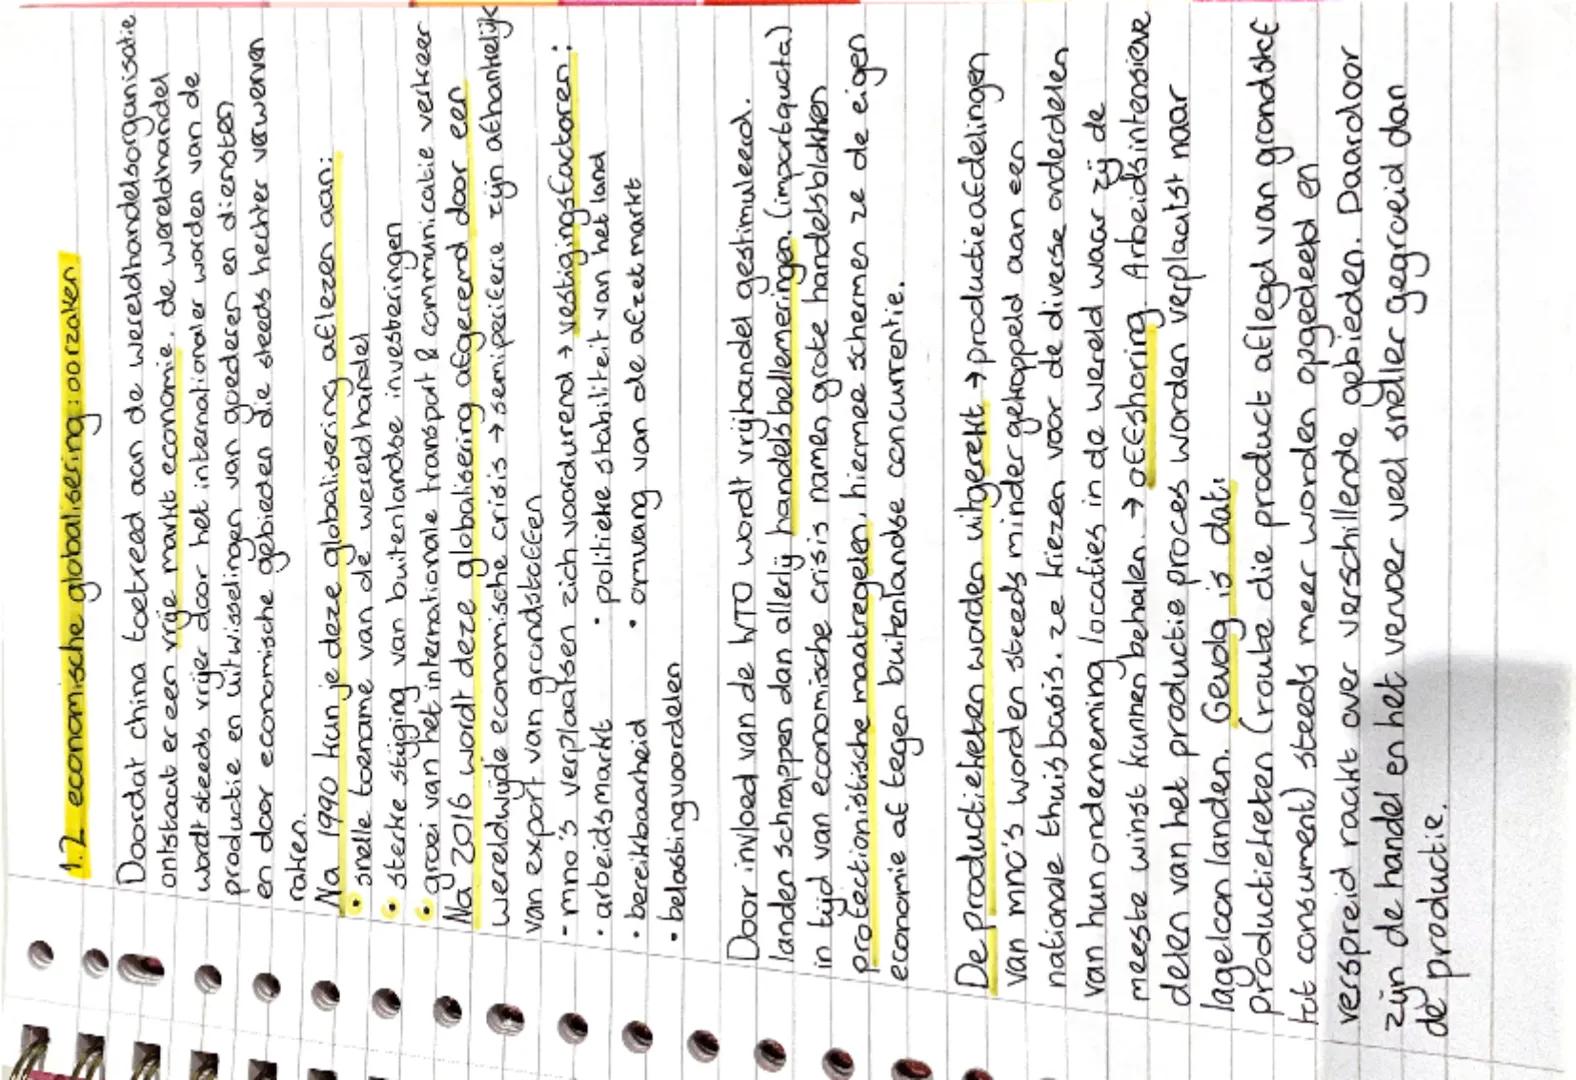 1.2 economische globalisering: oorzaken
Doordat china toetreed aan de wereldhandelsorganisatie
ontstaat er een vrije markt economie. de wereldhandel
wordt steeds vrijer door het internationaler worden van de
productie en uitwisselingen van goederen en diensten
en door economische gebieden die steeds hechter verweven
raken.
Na 1990 kun je deze globalisering aflezen aan:
• snelle toename van de wereldhandel
• sterke stijging van buitenlandse investeringen
• groei van het internationale transport & communicatie verkeer
Na 2016 wordt deze globalisering afgeremd door een
wereldwijde economische crisis → semiperiferie zijn afhankelijk
van export van grondstoffen
- mno's verplaatsen zich voordurend → vestigingsfactoren:
• arbeidsmarkt • politieke stabiliteit van het land
• bereikbaarheid • omvang van de afzetmarkt
• belastingvoordelen
Door invloed van de WTO wordt vrijhandel gestimuleerd.
landen schrappen dan allerlij handelsbellemeringen. (importquota)
in tijd van economische crisis namen grote handelsblokken
protectionistische maatregelen, hiermee schermen ze de eigen
economie af tegen buitenlandse concurrentie.
De productieketen worden uitgerekt. → productieafdelingen
van mno's worden steeds minder gekoppeld aan een
nationale thuisbasis. ze kiezen voor de diverse onderdelen
van hun onderneming locaties in de wereld waar zij de
meeste winst kunnen behalen. → offshoring. Arbeidsintensieve
delen van het productie proces worden verplaatst naar
lageloon landen. Gevolg is dat:
productieketen (route die product aflegd van grondstof
tot consument) steeds meer worden opgedeeld en
verspreid raakt over verschillende gebieden. Daardoor
zijn de handel en het vervoer veel sneller gegroeid dan
de productie.